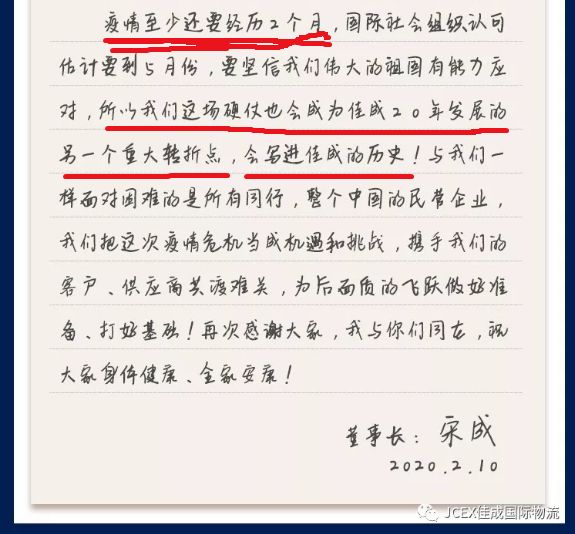 疫情至少还要经历2个月，国际社会组织认可
估计要到5月份，要坚信我们伟大的祖国有能力应
对，所以我们这场硬仗也会成为佳成20年发展的
另一个重大转折点，会写进佳成的历史！与我们一
样面对困难的是所有同行，整个中国的民营企业，
我们把这次疫情危机当成机遇和挑战，携手我们的
客户、供应商共渡难关，为后面质的飞跃做好准
备、打好基础！再次感谢大家，我与你们同在，祝
大家身体健康、全家安康！
董事长：宋成
2020.2.10
JCEX佳成国际物流